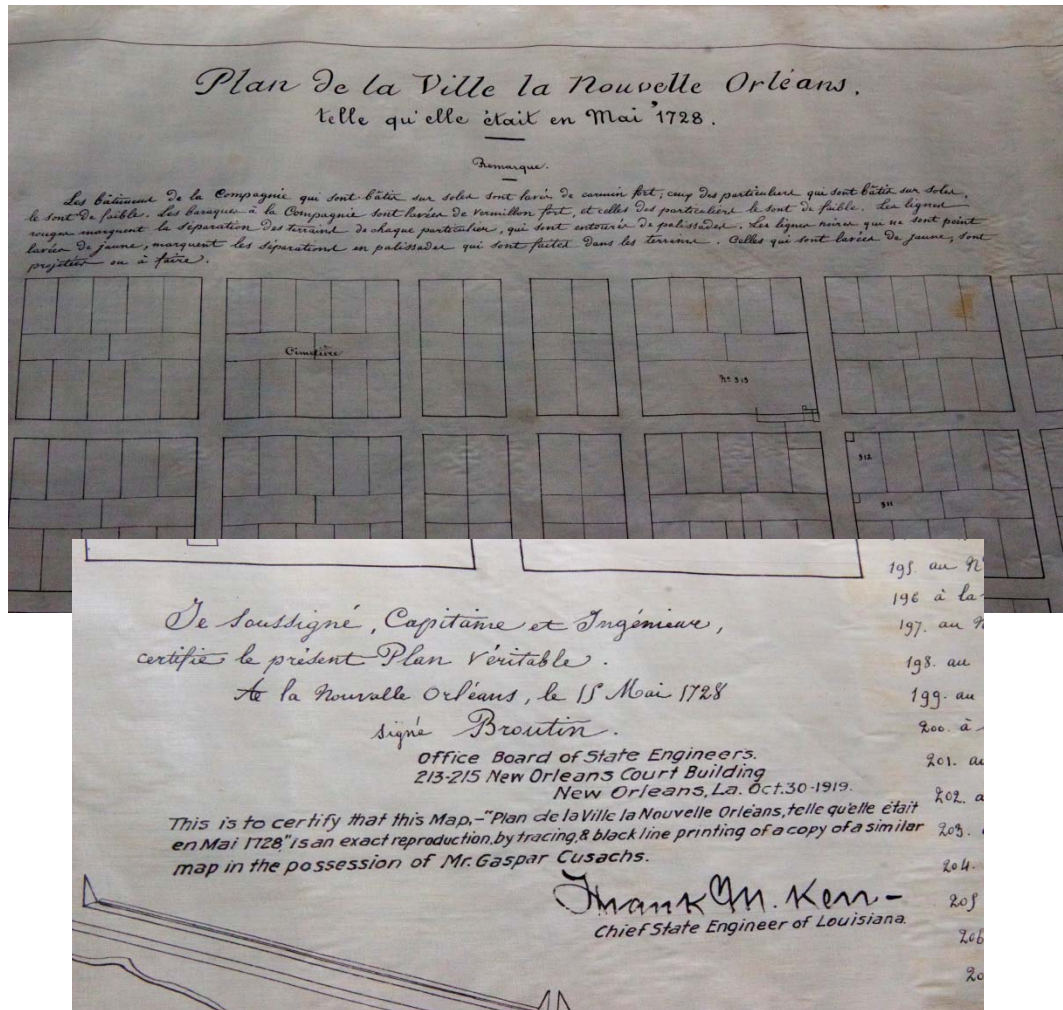 Plan de la Ville la Nouvelle Orléans.
telle qu'elle était en Mai 1728.
Remarque.
Les bâtimens de la Compagnie qui sont bâtis sur soles sont lavés de carmin fort, ceux des particuliers qui sont bâtis sur soles,
le sont de faible. Les baraques à la Compagnie sont lavées de vermillon fort, et celles des particuliers le sont de faible. Les lignes
rouges marquent la séparation des terrains de chaque particulier, qui sont entourés de palissades. Les lignes noires qui ne sont point
lavées de jaune, marquent les séparations en palissades qui sont faites dans les terrains. Celles qui sont lavées de jaune, sont
projettées ou à faire.
Cimetière
No. 313
312
311
Je Soussigné, Capitaine et Ingénieur,
certifie le présent Plan Véritable.
A la Nouvelle Orléans, le 15 Mai 1728
signé Broutin.
Office Board of State Engineers.
213-215 New Orleans Court Building
New Orleans, La. Oct. 30-1919.
This is to certify that this Map,-"Plan de la Ville la Nouvelle Orléans, telle qu'elle était
en Mai 1728," is an exact reproduction, by tracing, & black line printing of a copy of a similar
map in the possession of Mr. Gaspar Cusachs.
Frank M. Kerr-
Chief State Engineer of Louisiana.
195. au
196 à la
197. au
198. au
199. au
200. à
201. au
202. a
203.
204.
205
206